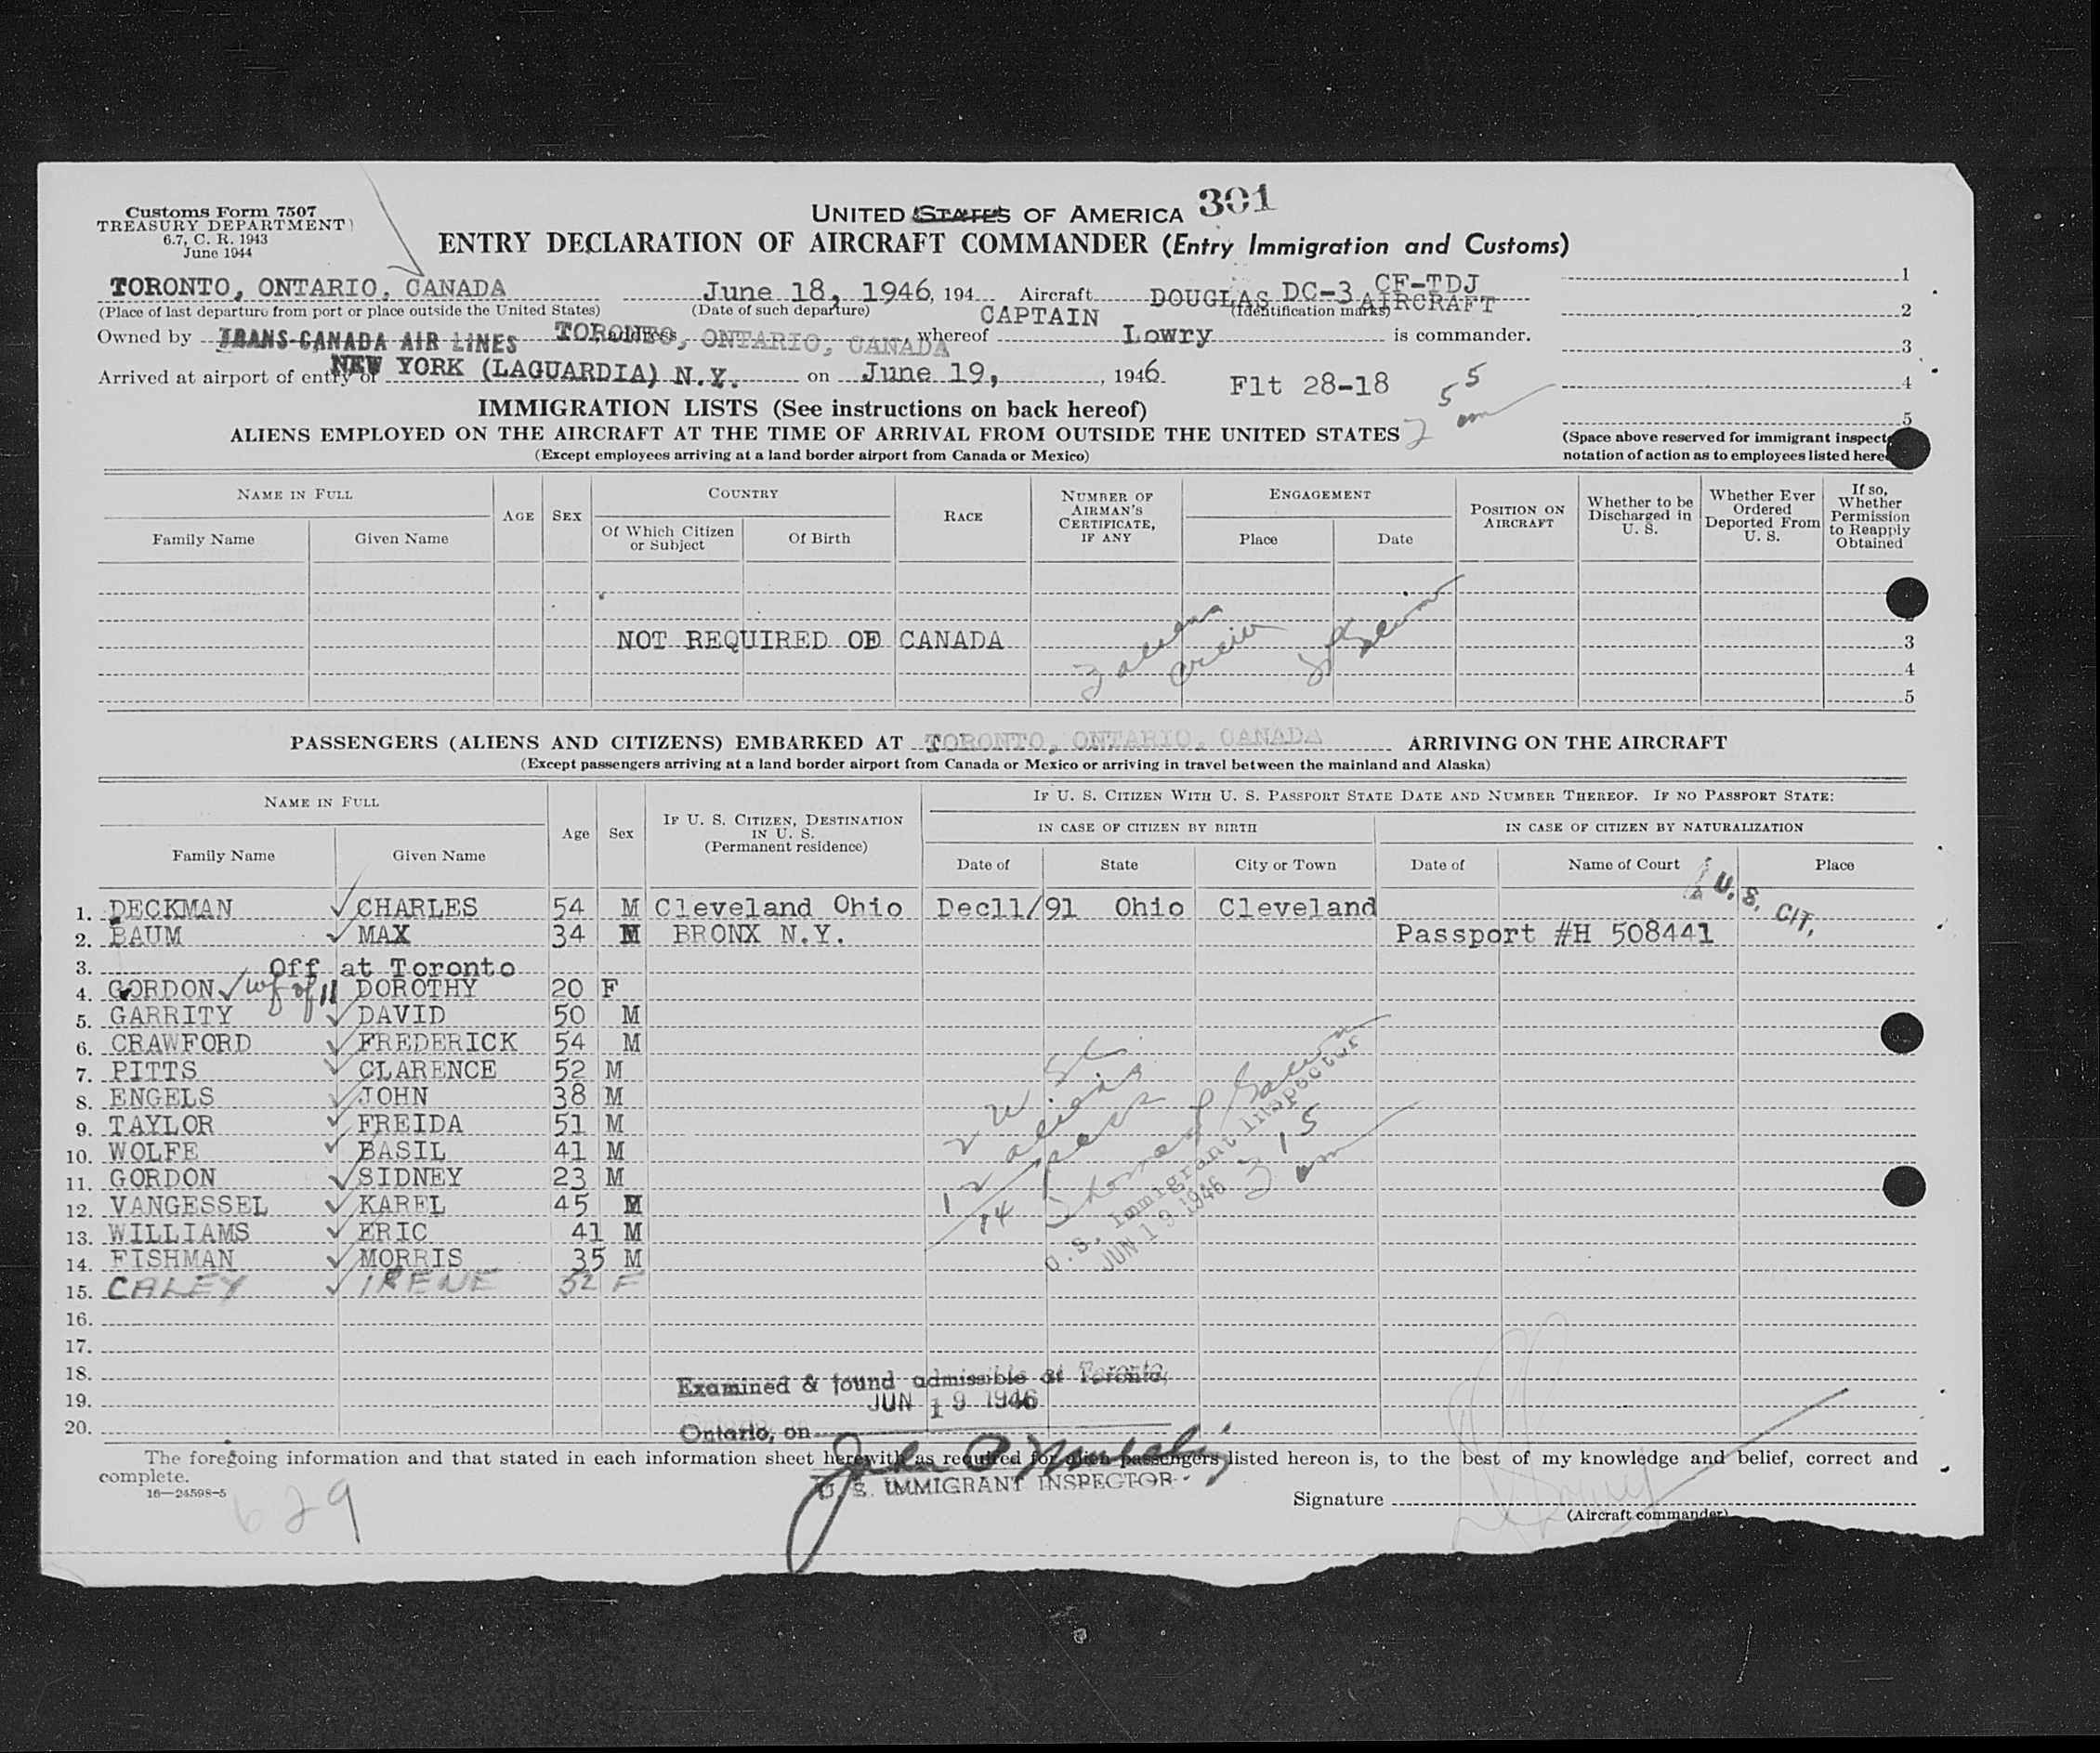 Customs Form 7507
TREASURY DEPARTMENT
6.7, C. R. 1943
June 1944
UNITED STATES OF AMERICA 301
ENTRY DECLARATION OF AIRCRAFT COMMANDER (Entry Immigration and Customs)
TORONTO, ONTARIO, CANADA June 18, 1946, 194 Aircraft DOUGLAS DC-3 CF-TDJ AIRCRAFT 1
(Place of last departure from port or place outside the United States) (Date of such departure) (Identification marks) 2
Owned by TRANS-CANADA AIR LINES TORONTO, ONTARIO, CANADA whereof CAPTAIN Lowry is commander. 3
Arrived at airport of entry of NEW YORK (LAGUARDIA) N.Y. on June 19, , 1946 Flt 28-18 4
5
IMMIGRATION LISTS (See instructions on back hereof)
ALIENS EMPLOYED ON THE AIRCRAFT AT THE TIME OF ARRIVAL FROM OUTSIDE THE UNITED STATES
(Except employees arriving at a land border airport from Canada or Mexico)
(Space above reserved for immigrant inspect
notation of action as to employees listed here
NAME IN FULL
Family Name Given Name
AGE SEX
COUNTRY
Of Which Citizen or Subject Of Birth
RACE
NUMBER OF AIRMAN'S CERTIFICATE, IF ANY
ENGAGEMENT
Place Date
POSITION ON AIRCRAFT
Whether to be Discharged in U. S.
Whether Ever Ordered Deported From U. S.
If so, Whether Permission to Reapply Obtained
NOT REQUIRED OF CANADA 3
4
5
PASSENGERS (ALIENS AND CITIZENS) EMBARKED AT TORONTO, ONTARIO, CANADA ARRIVING ON THE AIRCRAFT
(Except passengers arriving at a land border airport from Canada or Mexico or arriving in travel between the mainland and Alaska)
NAME IN FULL
Family Name Given Name
Age Sex
IF U. S. CITIZEN, DESTINATION IN U. S.
(Permanent residence)
IF U. S. CITIZEN WITH U. S. PASSPORT STATE DATE AND NUMBER THEREOF. IF NO PASSPORT STATE:
IN CASE OF CITIZEN BY BIRTH IN CASE OF CITIZEN BY NATURALIZATION
Date of State City or Town Date of Name of Court Place
U. S. CIT.
1. DECKMAN CHARLES 54 M Cleveland Ohio Dec11/91 Ohio Cleveland
2. BAUM MAX 34 M BRONX N.Y. Passport #H 508441
3. Off at Toronto
4. GORDON wf of 11 DOROTHY 20 F
5. GARRITY DAVID 50 M
6. CRAWFORD FREDERICK 54 M
7. PITTS CLARENCE 52 M
8. ENGELS JOHN 38 M
9. TAYLOR FREIDA 51 M
10. WOLFE BASIL 41 M
11. GORDON SIDNEY 23 M
12. VANGESSEL KAREL 45 M
13. WILLIAMS ERIC 41 M
14. FISHMAN MORRIS 35 M
15. CALEY IRENE 32 F
16.
17.
18.
19.
20.
12 aliens
14
U.S. Immigrant Inspector
JUN 19 1946
Examined & found admissible at Toronto,
JUN 19 1946
Ontario, on
The foregoing information and that stated in each information sheet herewith as required for alien passengers listed hereon is, to the best of my knowledge and belief, correct and
complete.
U. S. IMMIGRANT INSPECTOR
16—24598-5
629
Signature
(Aircraft commander)